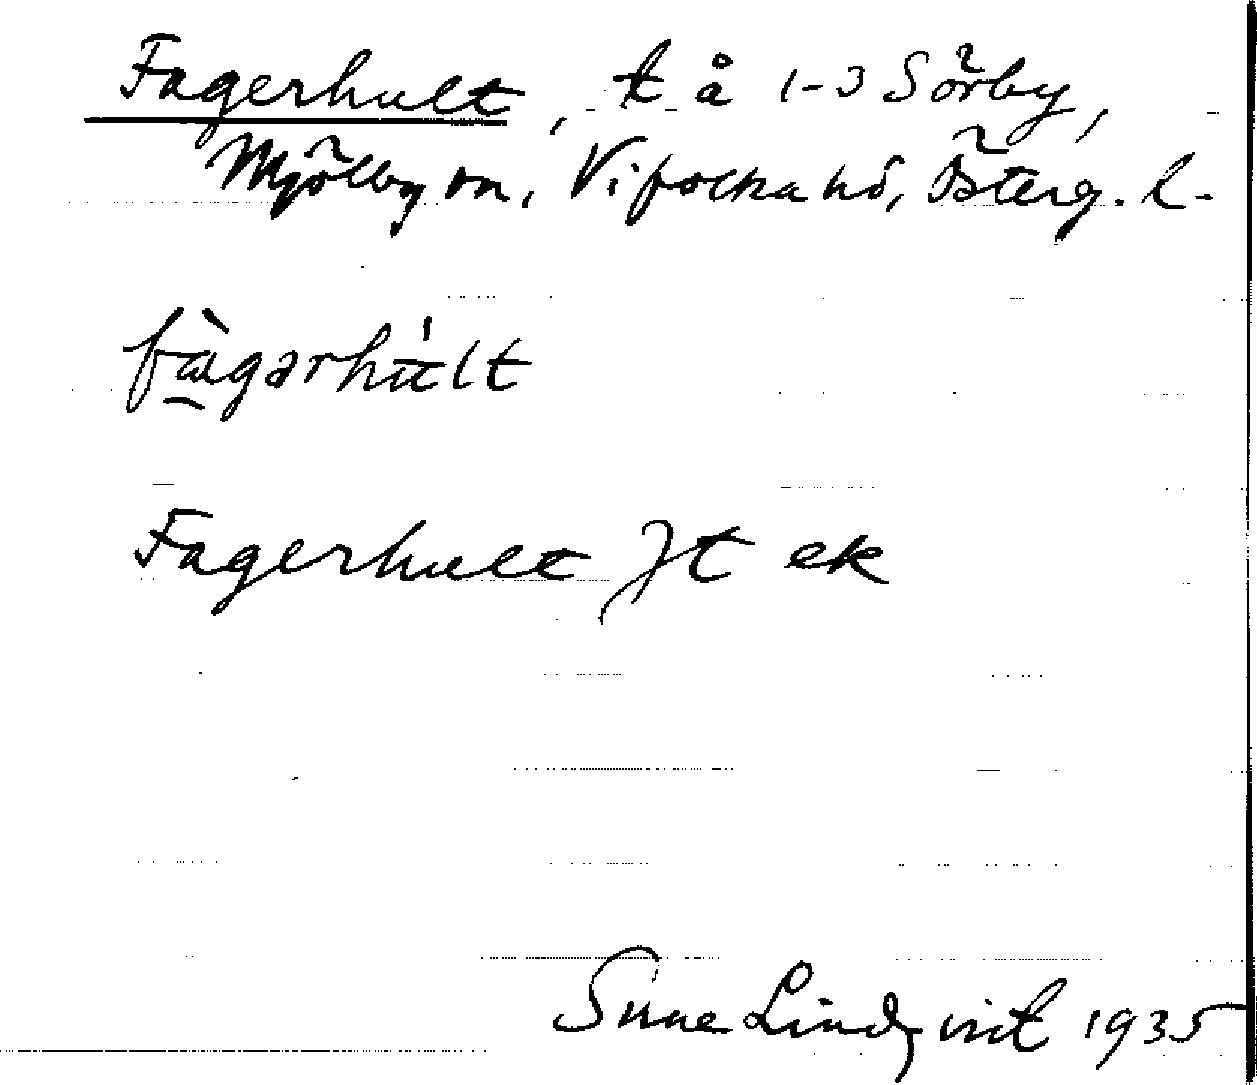 Fagerhult, t å 1-3 Sörby,
Mjölby sn, Vifolka hd, Österg. l.
fàgərhu̇lt
Fagerhult Jt ek
Sune Lindqvist 1935